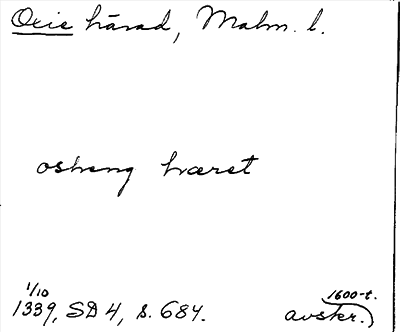 Oxie härad, Malm. l.
osheng hæret
1/10 1339, SD 4, s. 684.
1600-t. avskr.)